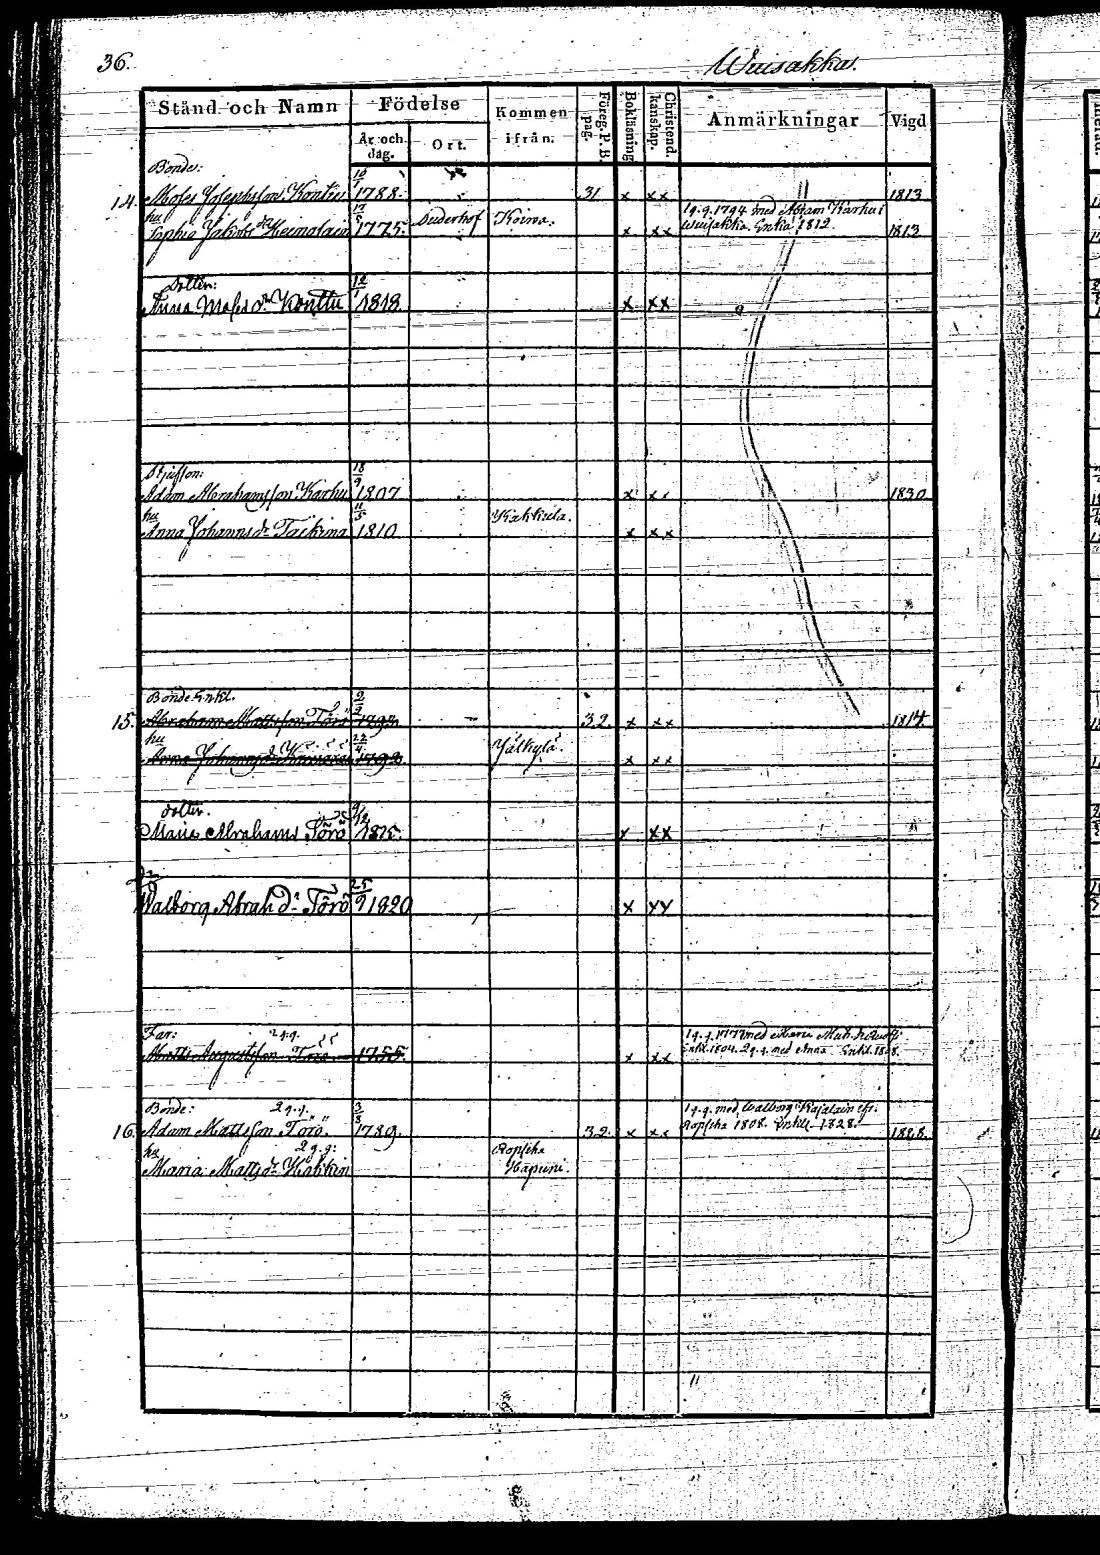 36.
Wuisakka.
Stånd och Namn Födelse Kommen ifrån. Föreg. P. B. pag. Boklåsning Christend. kunskap. Anmärkningar Vigd
År och dag. Ort.
Bonde:
14. Moses Josephsson Konttu 1788. 31 x xx 1813
hu
Sophia Jakobs dr Heimolain 17/5 1775. Duderhof Koirva. x xx 1 g. g. 1794 med Abram Karhu i Wuisakka. Enka 1812. 1813
Dotter:
Anna Moses dr Konttu 12/1 1818. x xx
Adam Abrahamsson Karhu 18/9 1807 x xx 1830
hu
Anna Johanns dr Taikina 11/5 1810 Kakkula. x xx
Bonde Enkl.
15. Abraham Mattsson Törö 2/2 32. x xx 1814
hu
Anna Johanns dr 22/4 Jälkylä. x xx
dotter.
Maria Abrahams Törö 1815. x xx
Dr
Walborg Abrah dr Törö 25/9 1820 x xx
Far: 2 g.g.
Matts Augustsson Törö 1755. x xx 1 g. g. 1777 med Maria Enkl. 1804. 2 g. g. med Anna Enkl. 1828.
Bonde: 2 g.g.
16. Adam Mattsson Törö. 3/8 1789. 32. x xx 1 g. g. med Walborg Ropscha 1808. Enkl. 1828. 1828.
hu 2 g.g:
Maria Matts dr Kakkin Ropscha Hapuni.